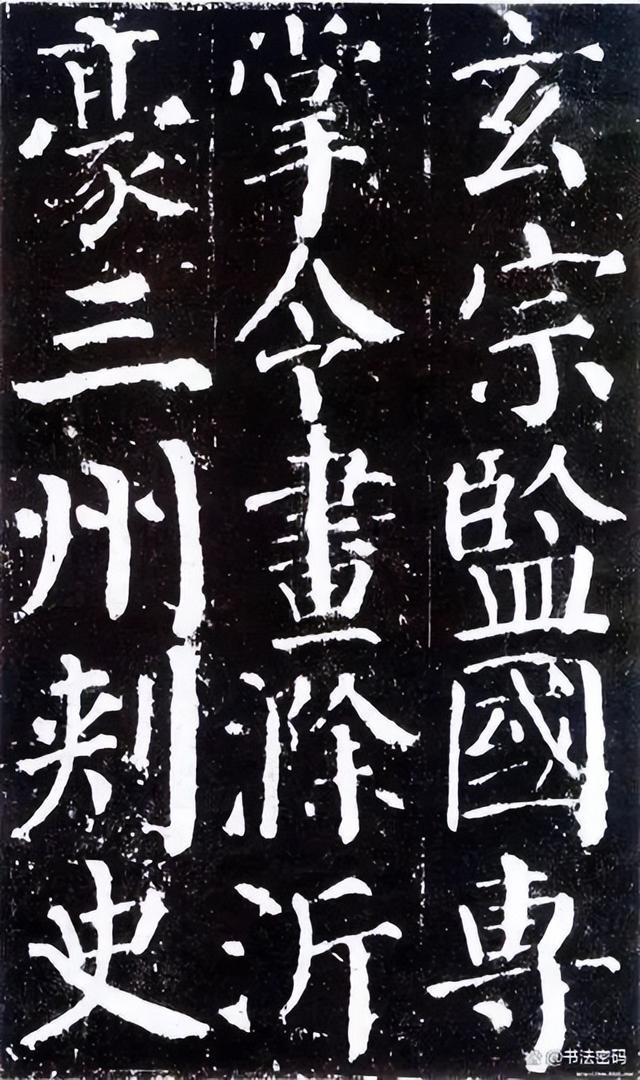 玄宗監國專
掌令畫滁沂
豪三州刺史
@书法密码